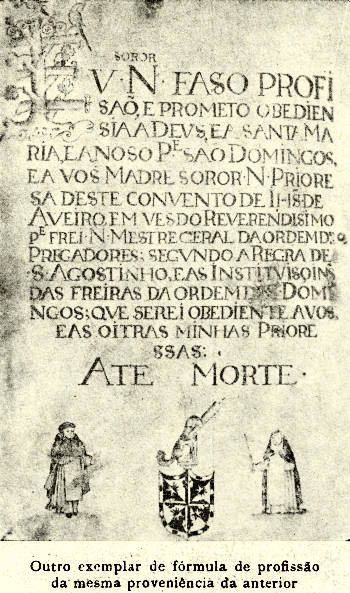 SOROR
EV·N·FASO PROFI
SAÕ, E PROMETO OBEDIEN
SIA A DEVS, E A SANTA MA
RIA, E A NOSO Pᴱ SAO DOMINGOS,
E A VOS MADRE SOROR·N·PRIORE
SA DESTE CONVENTO DE DE
AVEIRO, EM VES DO REVERENDISIMO
Pᴱ FREI·N·MESTRE GERAL DA ORDEM DE
PREGADORES: SEGVNDO A REGRA DE
S. AGOSTINHO, E AS INSTITVISOINS
DAS FREIRAS DA ORDEM DE DOMI
NGOS; QVE SEREI OBEDIENTE A VOS,
E AS OITRAS MINHAS PRIORE
SSAS:
ATE MORTE·
Outro exemplar de fórmula de profissão
da mesma proveniência da anterior